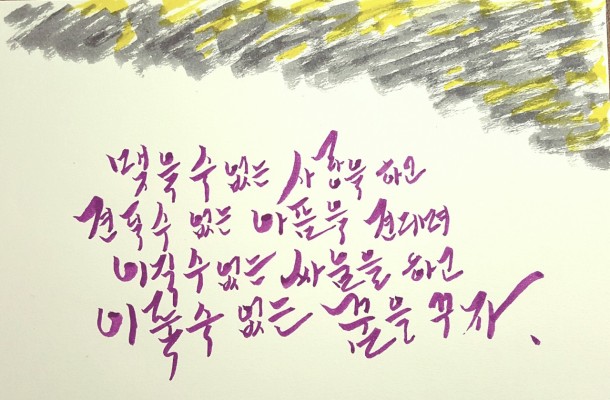 맺을수 없는 사랑을 하고
견딜수 없는 아픔을 견디며
이길수없는 싸움을 하고
이룰수 없는 꿈을 꾸자.